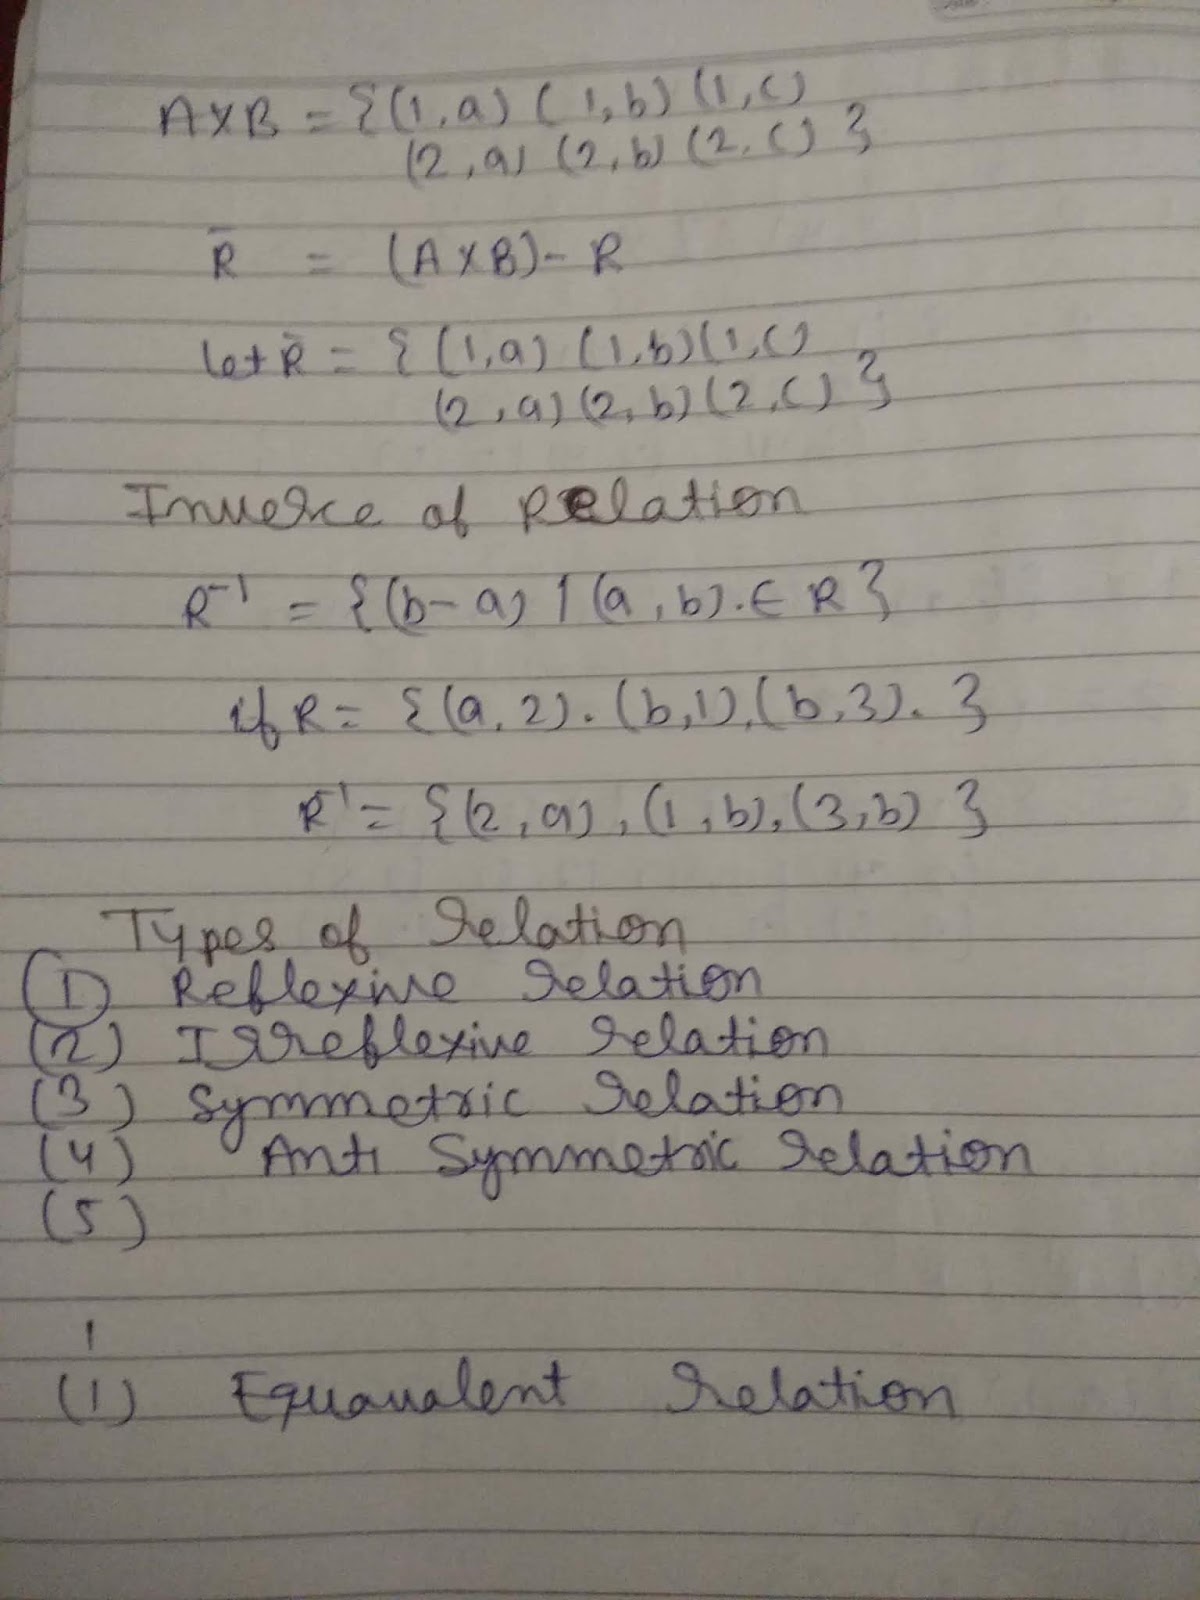 A×B = {(1,a) (1,b) (1,c)
(2,a) (2,b) (2,c) }
R̄ = (A×B)- R
let R̄ = { (1,a) (1,b) (1,c)
(2,a) (2,b) (2,c) }
Inverce of Relation
R⁻¹ = {(b-a) | (a,b). ∈ R }
if R = {(a,2). (b,1), (b,3). }
R⁻¹ = {(2,a), (1,b), (3,b) }
Types of relation
(1) Reflexive relation
(2) Irreflexive relation
(3) Symmetric relation
(4) Anti Symmetric relation
(5)
1
(1) Equavalent relation